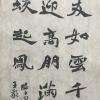 友如雲千
迎高朋滿
蛟起鳳